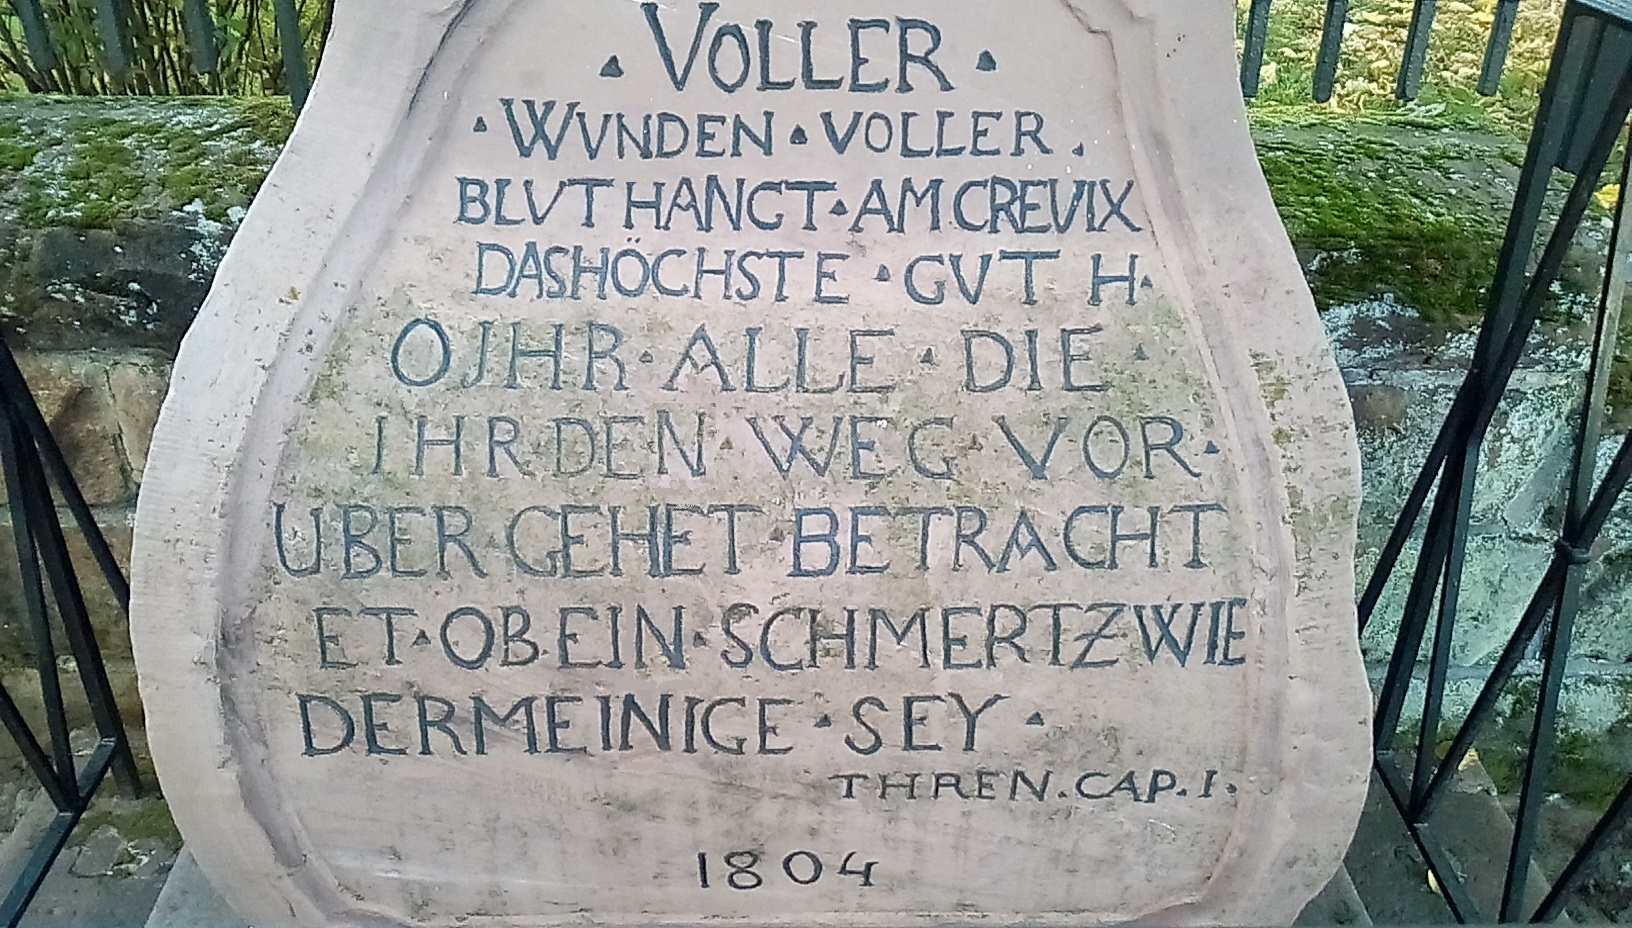 ▴ VOLLER ▴
▴ WVNDEN ▴ VOLLER .
BLVT HANGT ▴ AM CREUIX
DASHÖCHSTE ▴ GVT H ▴
OJHR ▴ ALLE ▴ DIE ▴
JHR DEN ▴ WEG VOR ▴
UBER GEHET BETRACHT
ET ▴ OB EIN ▴ SCHMERTZ WIE
DERMEINIGE ▴ SEY ▴
THREN. CAP. I.
1804